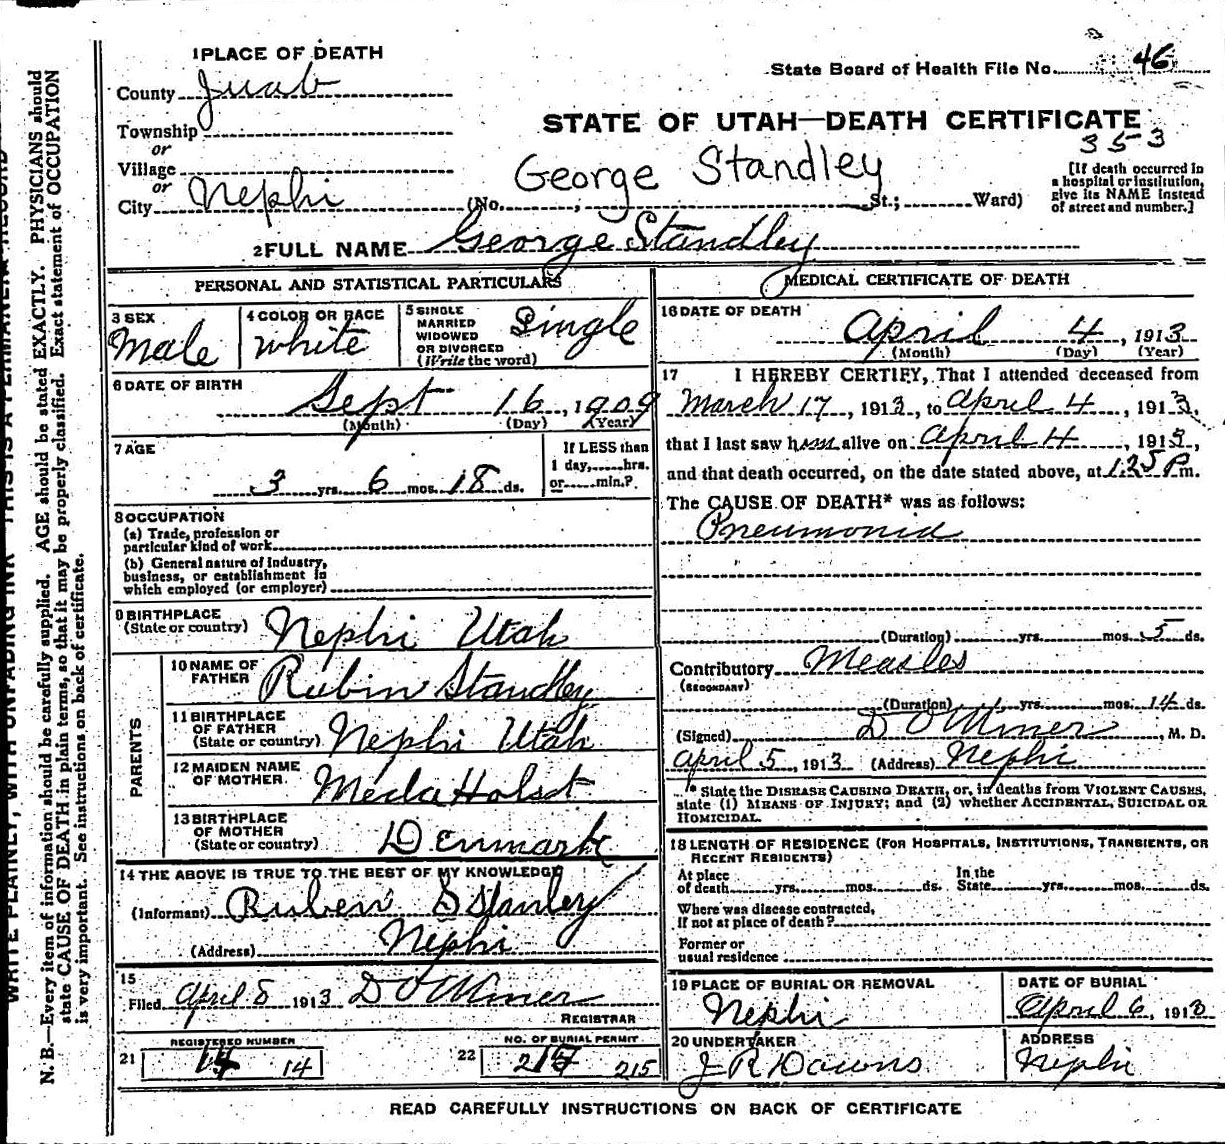 1 PLACE OF DEATH
County Juab
State Board of Health File No. 46
Township
or
Village
or
City Nephi (No. , St.; Ward)
STATE OF UTAH—DEATH CERTIFICATE
353
George Standley
[If death occurred in
a hospital or institution,
give its NAME instead
of street and number.]
2 FULL NAME George Standley
PERSONAL AND STATISTICAL PARTICULARS
3 SEX
Male
4 COLOR OR RACE
White
5 SINGLE
MARRIED
WIDOWED
OR DIVORCED
(Write the word)
Single
6 DATE OF BIRTH
Sept 16, 1909
(Month) (Day) (Year)
7 AGE
3 yrs. 6 mos. 18 ds.
If LESS than
1 day, hrs.
or min.?
8 OCCUPATION
(a) Trade, profession or
particular kind of work
(b) General nature of industry,
business, or establishment in
which employed (or employer)
9 BIRTHPLACE
(State or country) Nephi Utah
PARENTS
10 NAME OF
FATHER Rubin Standley
11 BIRTHPLACE
OF FATHER
(State or country) Nephi Utah
12 MAIDEN NAME
OF MOTHER Meda Holst
13 BIRTHPLACE
OF MOTHER
(State or country) Denmark
14 THE ABOVE IS TRUE TO THE BEST OF MY KNOWLEDGE
(Informant) Ruben S Stanley
(Address) Nephi
15
Filed April 5 1913 D O Miner
REGISTRAR
21 REGISTERED NUMBER
14
22 NO. OF BURIAL PERMIT
215
MEDICAL CERTIFICATE OF DEATH
16 DATE OF DEATH
April 4, 1913
(Month) (Day) (Year)
17 I HEREBY CERTIFY, That I attended deceased from
March 17, 1913, to April 4, 1913,
that I last saw him alive on April 4, 1913,
and that death occurred, on the date stated above, at 1:25 P.m.
The CAUSE OF DEATH* was as follows:
Pneumonia
(Duration) yrs. mos. 5 ds.
Contributory Measles
(SECONDARY)
(Duration) yrs. mos. 14 ds.
(Signed) D O Miner, M. D.
April 5, 1913 (Address) Nephi
* State the DISEASE CAUSING DEATH, or, in deaths from VIOLENT CAUSES,
state (1) MEANS OF INJURY; and (2) whether ACCIDENTAL, SUICIDAL OR
HOMICIDAL.
18 LENGTH OF RESIDENCE (FOR HOSPITALS, INSTITUTIONS, TRANSIENTS, OR
RECENT RESIDENTS)
At place
of death yrs. mos. ds.
In the
State yrs. mos. ds.
Where was disease contracted,
if not at place of death?
Former or
usual residence
19 PLACE OF BURIAL OR REMOVAL
Nephi
DATE OF BURIAL
April 6, 1913
20 UNDERTAKER
J R Downs
ADDRESS
Nephi
READ CAREFULLY INSTRUCTIONS ON BACK OF CERTIFICATE
WRITE PLAINLY, WITH UNFADING INK THIS IS A PERMANENT RECORD
N. B.—Every item of information should be carefully supplied. AGE should be stated EXACTLY. PHYSICIANS should
state CAUSE OF DEATH in plain terms, so that it may be properly classified. Exact statement of OCCUPATION
is very important. See instructions on back of certificate.